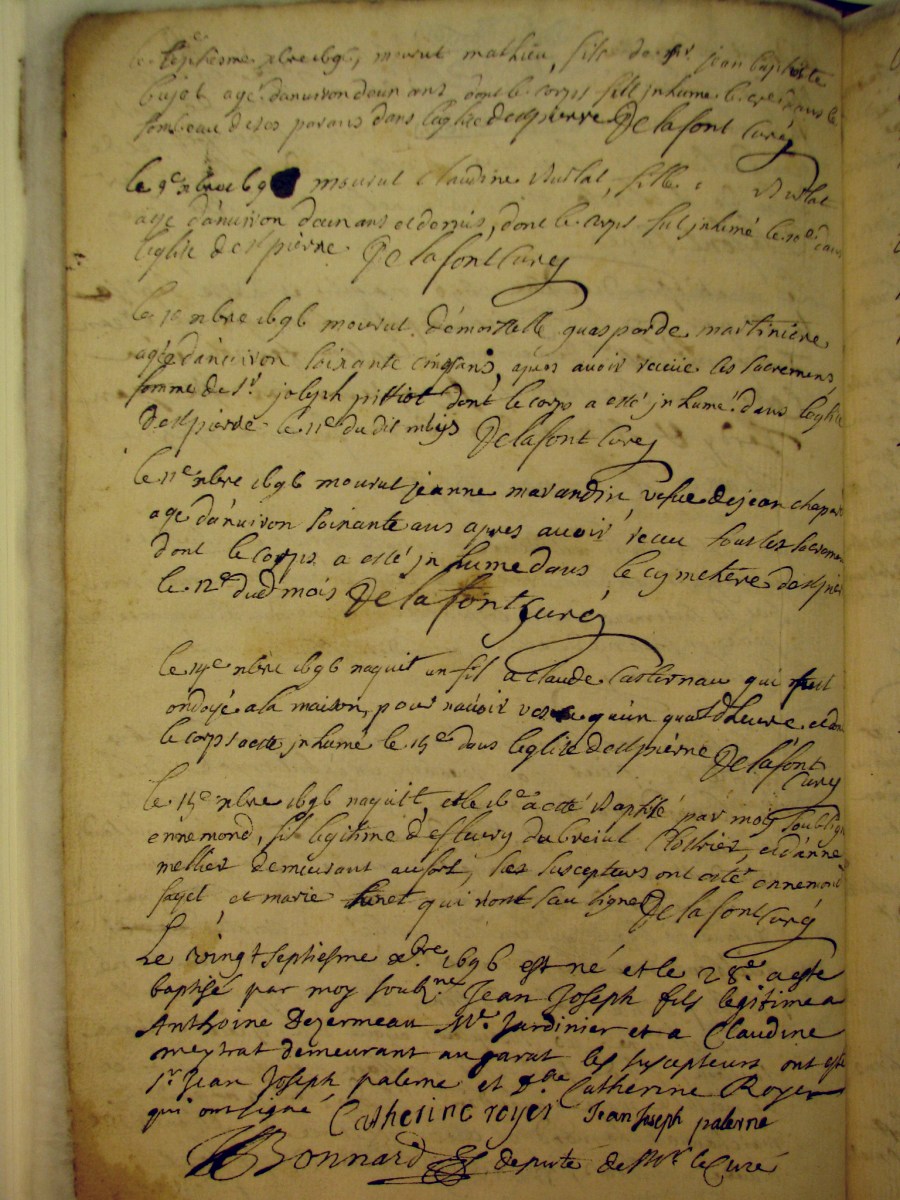 le septiesme xbre 1696, mourut mathieu, fils de sr jean baptiste
bujet agé danuiron deun ans dont le corps fut jnhumé le dans le
tombeau de ses parans dans leglise de st pierre De la font Curé
le 9e xbre 169 mourut Claudine Burlat, fille Burlat
agé d'anuiron deun ans et demis, dont le corps fut jnhumé le 10e dans
leglise de st pierre De la font Curé
le 10 xbre 1696 mourut démoiselle gasparde martiniere
agée d'anuiron soixante cinq ans, apres auoir receue les sacremens
femme de sr joseph pittiot dont le corps a esté jnhumé dans leglise
de st pierre le 11e du dit mois De la font Curé
le 11e xbre 1696 mourut jeanne marandin, vefue de jean chapui
agé d'anuiron soixante ans apres auoir receu tout les sacremens
dont le corps a esté jnhumé dans le cymetiere de st pierre
le 12e dud mois De la font Curé
le 14e xbre 1696 naquit un fil a Claude Casternau qui fut
ondoyé a la maison, pour n'auoir vescu qu'un quart d'heure, et
le corps a esté jnhumé le 15e dans leglise de st pierre De la font
Curé
le 15e xbre 1696 naquit, et le 16e a esté Baptisé par moy soubsigné
ennemond, fils legitime d'esfleury dubreiul Clostrier, et d'anne
mellier demeurant au fort, les suscepteurs ont esté ennemond
fayet et marie qui n'ont sceu signer De la font Curé
Le vingt septiesme xbre 1696 est né et le 28e a esté
baptisé par moy soubsné Jean Joseph fils legitime a
Anthoine Dezermeau Me Jardinier et a Claudine
meytrat demeurant au garat les suscepteurs ont esté
sr Jean Joseph palerne et dlle Catherine Royer
qui ont signé Catherine royer Jean Joseph palerne
Bonnard deputé de Mr le Curé